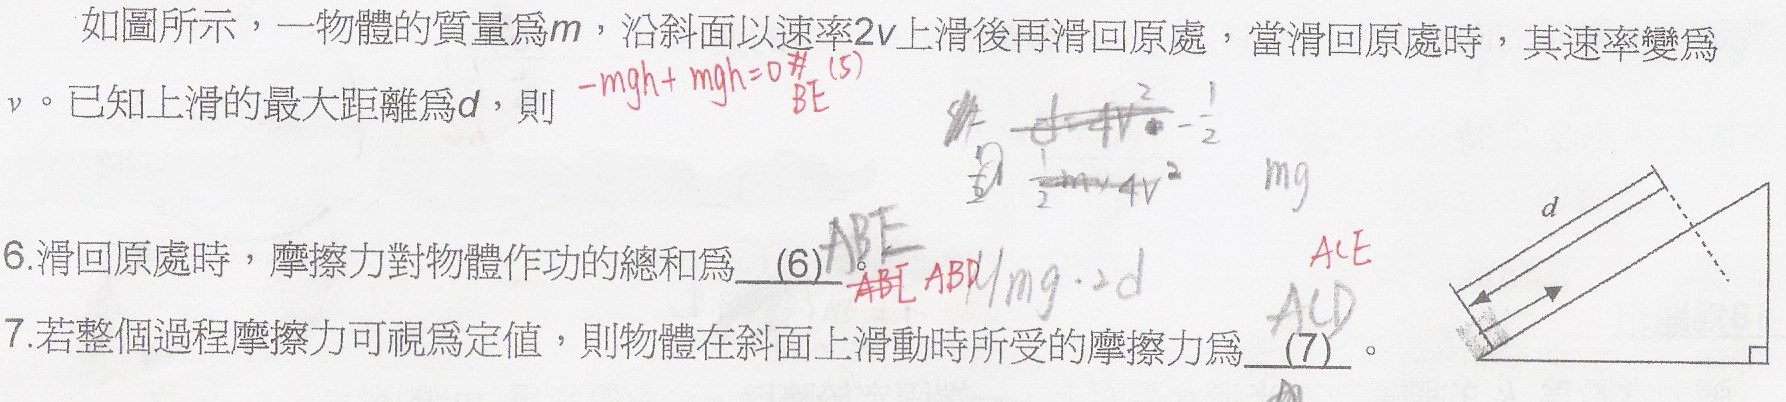 如圖所示，一物體的質量爲m，沿斜面以速率2v上滑後再滑回原處，當滑回原處時，其速率變爲
v。已知上滑的最大距離爲d，則
-mgh+mgh=0# (5)
BE
-1/2
1/2 m×4v²
mg
d
6.滑回原處時，摩擦力對物體作功的總和爲 (6) 。
ABE
ABE ABD
μmg·2d
ACE
ACD
7.若整個過程摩擦力可視爲定值，則物體在斜面上滑動時所受的摩擦力爲 (7) 。